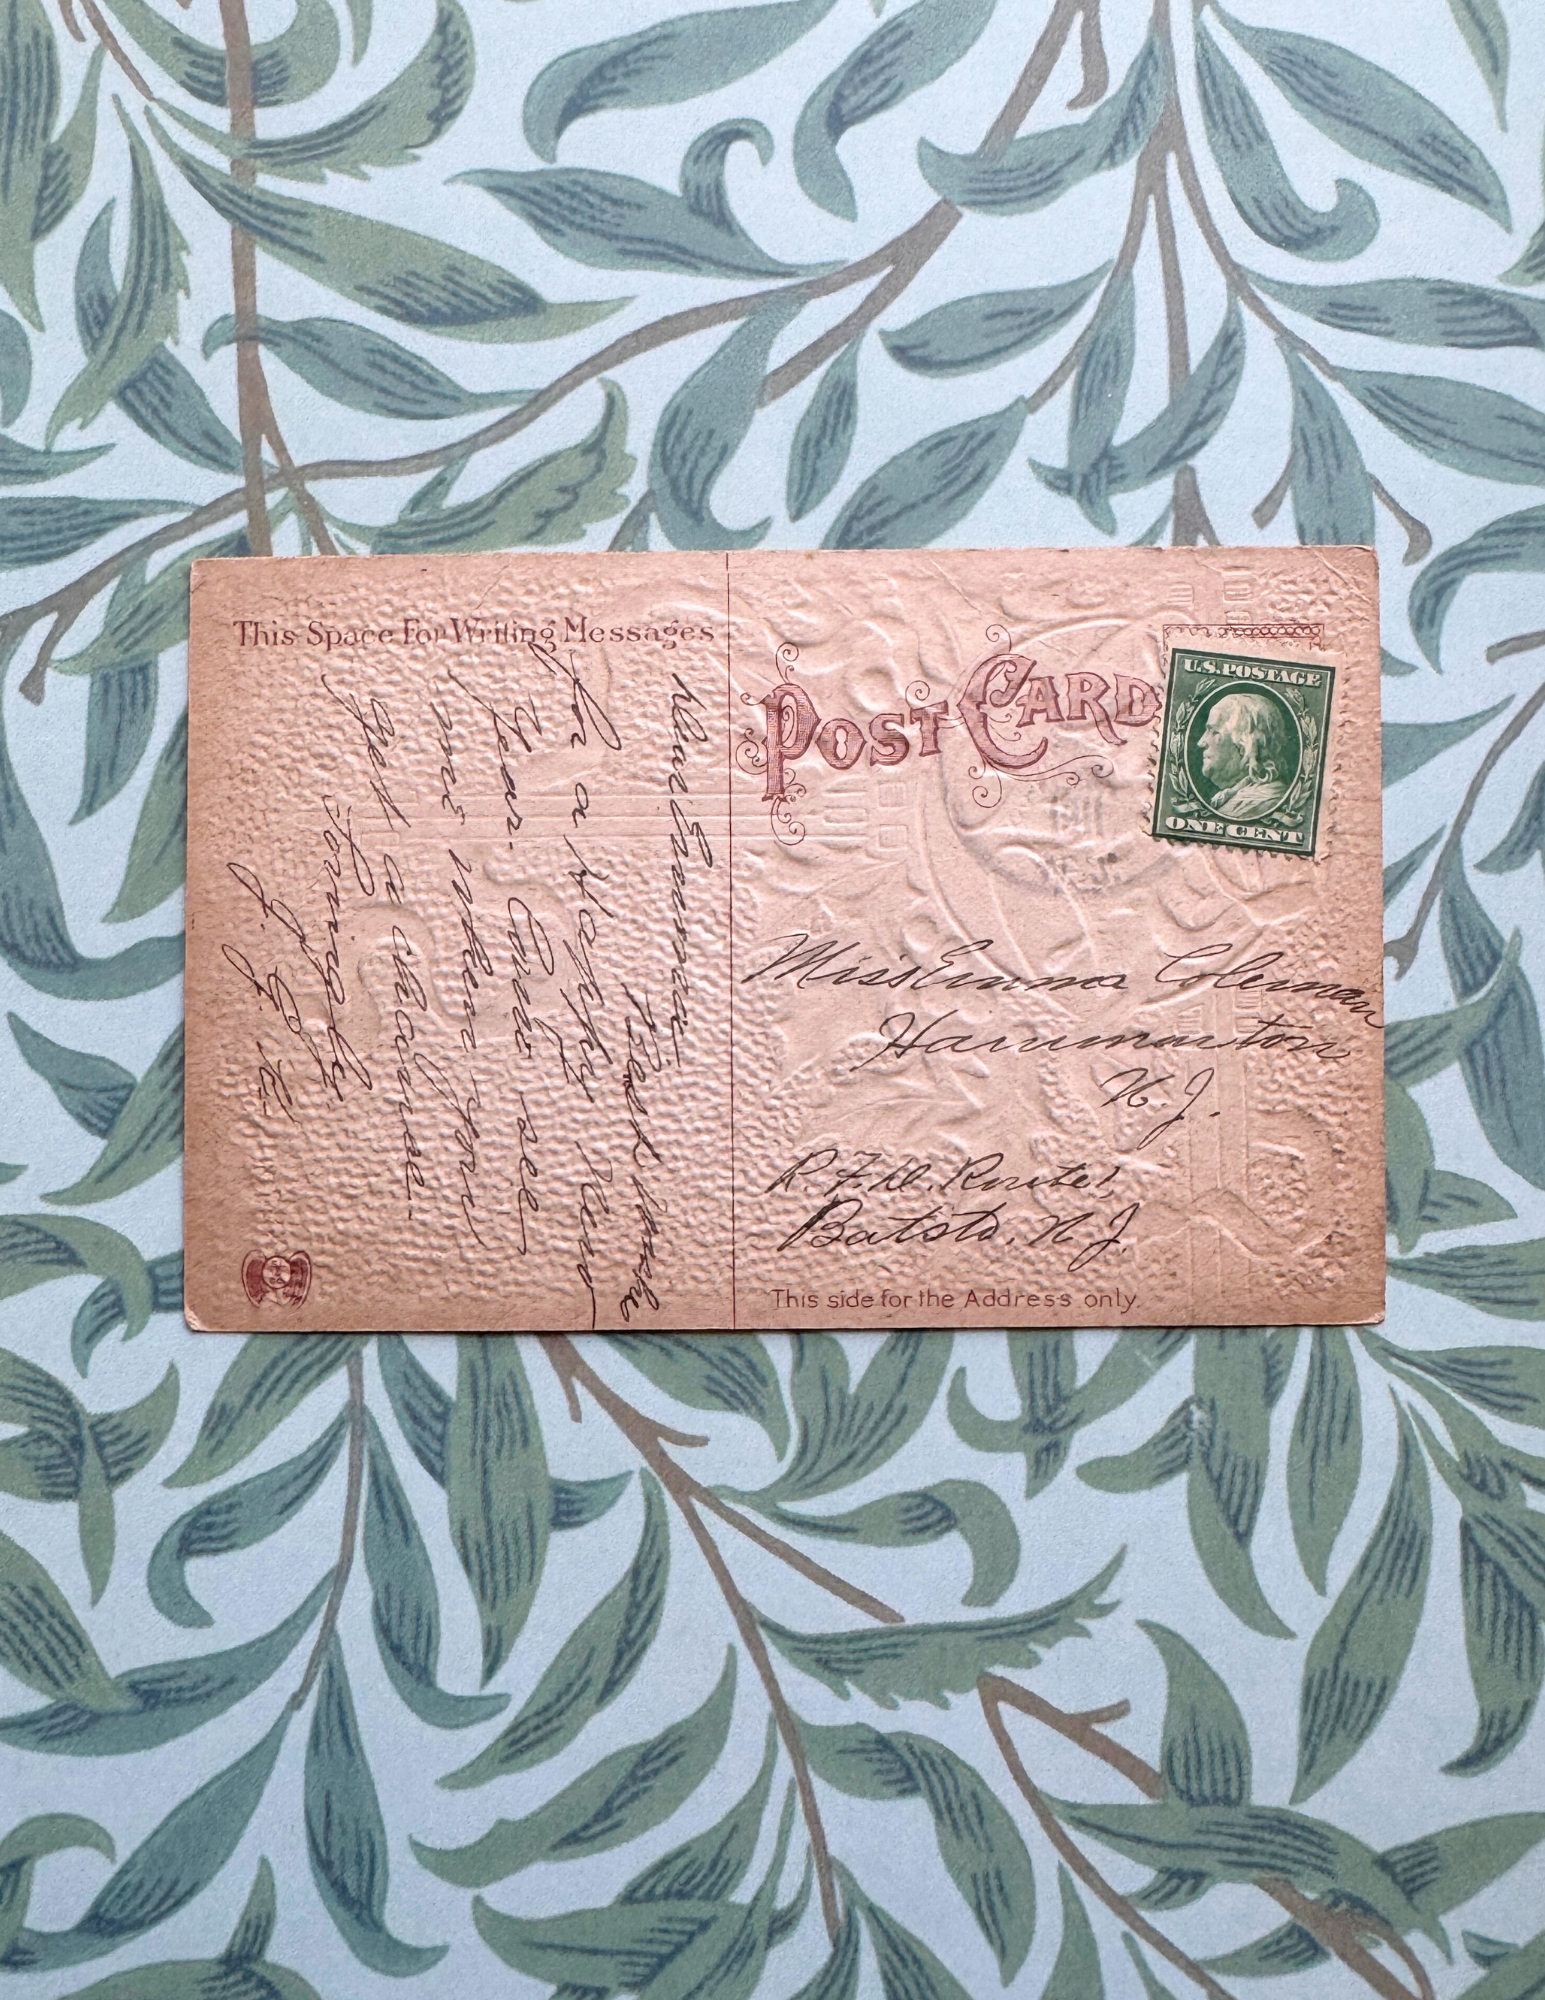 This Space For Writing Messages
Dear Emma,
Best wishes
for a Happy New
Year. Come see
me when you
get a chance.
Lovingly
J. G. K.
POST CARD
U.S. POSTAGE
ONE CENT
Miss Emma Coleman
Hammonton
N. J.
R. F. D. Route 1,
Batsto, N. J.
This side for the Address only.